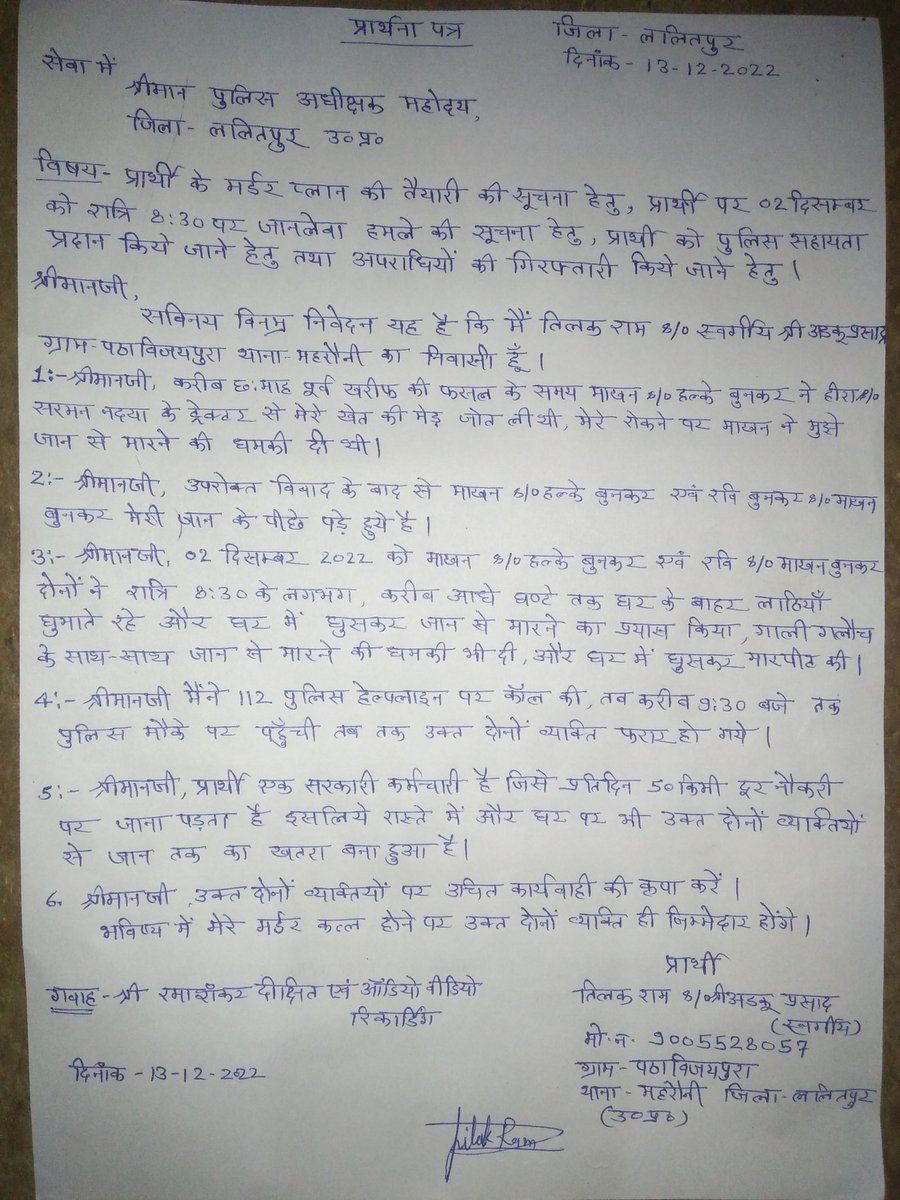 प्रार्थना पत्र
जिला - ललितपुर
दिनांक - 13-12-2022
सेवा में
श्रीमान पुलिस अधीक्षक महोदय,
जिला - ललितपुर उ०प्र०
विषय - प्रार्थी के मर्डर प्लान की तैयारी की सूचना हेतु, प्रार्थी पर 02 दिसम्बर
को रात्रि 8:30 पर जानलेवा हमले की सूचना हेतु, प्रार्थी को पुलिस सहायता
प्रदान किये जाने हेतु तथा अपराधियों की गिरफ्तारी किये जाने हेतु।
श्रीमानजी,
सविनय विनम्र निवेदन यह है कि मैं तिलक राम s/o स्वर्गीय श्री अडकू प्रसाद
ग्राम-पठाविजयपुरा थाना-महरौनी का निवासी हूँ।
1:- श्रीमानजी, करीब छ:माह पूर्व खरीफ की फसल के समय माखन s/o हल्के बुनकर ने हीरा s/o
सरमन नदया के ट्रेक्टर से मेरे खेत की मेड़ जोत ली थी, मेरे रोकने पर माखन ने मुझे
जान से मारने की धमकी दी थी।
2:- श्रीमानजी, उपरोक्त विवाद के बाद से माखन s/o हल्के बुनकर एवं रवि बुनकर s/o माखन
बुनकर मेरी जान के पीछे पड़े हुये है।
3:- श्रीमानजी, 02 दिसम्बर 2022 को माखन s/o हल्के बुनकर एवं रवि s/o माखन बुनकर
दोनों ने रात्रि 8:30 के लगभग, करीब आधे घण्टे तक घर के बाहर लाठियाँ
घुमाते रहे और घर में घुसकर जान से मारने का प्रयास किया, गाली गलौच
के साथ-साथ जान से मारने की धमकी भी दी, और घर में घुसकर मारपीट की।
4:- श्रीमानजी मैंने 112 पुलिस हेल्पलाइन पर कॉल की, तब करीब 9:30 बजे तक
पुलिस मौके पर पहुँची तब तक उक्त दोनों व्यक्ति फरार हो गये।
5:- श्रीमानजी, प्रार्थी एक सरकारी कर्मचारी है जिसे प्रतिदिन 50 किमी दूर नौकरी
पर जाना पड़ता है इसलिये रास्ते में और घर पर भी उक्त दोनों व्यक्तियों
से जान तक का खतरा बना हुआ है।
6. श्रीमानजी, उक्त दोनों व्यक्तियों पर उचित कार्यवाही की कृपा करें।
भविष्य में मेरे मर्डर कत्ल होने पर उक्त दोनों व्यक्ति ही जिम्मेदार होंगे।
प्रार्थी
गवाह - श्री रमाशंकर दीक्षित एवं ऑडियो वीडियो
रिकार्डिंग
तिलक राम s/o श्री अडकू प्रसाद
(स्वर्गीय)
मो.न. 9005528057
ग्राम - पठाविजयपुरा
थाना - महरौनी जिला - ललितपुर
(उ०प्र०)
दिनांक - 13-12-2022
Tilak Ram